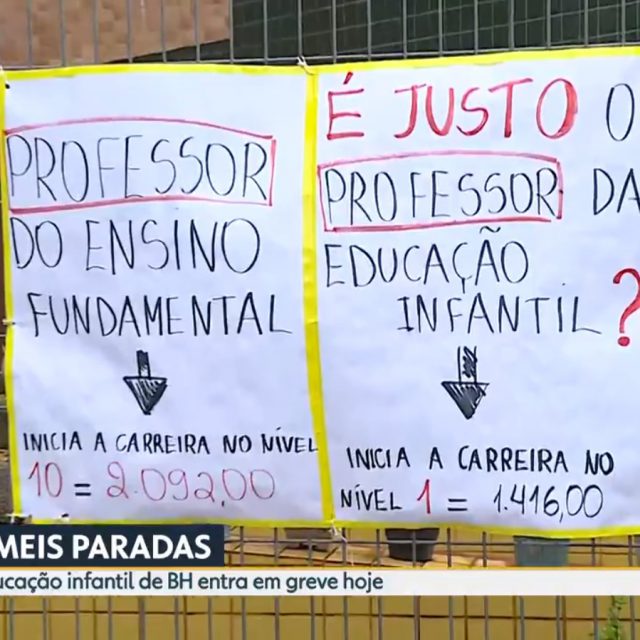 PROFESSOR
DO ENSINO
FUNDAMENTAL
INICIA A CARREIRA NO NÍVEL
10 = 2.092,00
É JUSTO O
PROFESSOR DA
EDUCAÇÃO
INFANTIL ?
INICIA A CARREIRA NO
NÍVEL 1 = 1.416,00
MEIS PARADAS
ucação infantil de BH entra em greve hoje